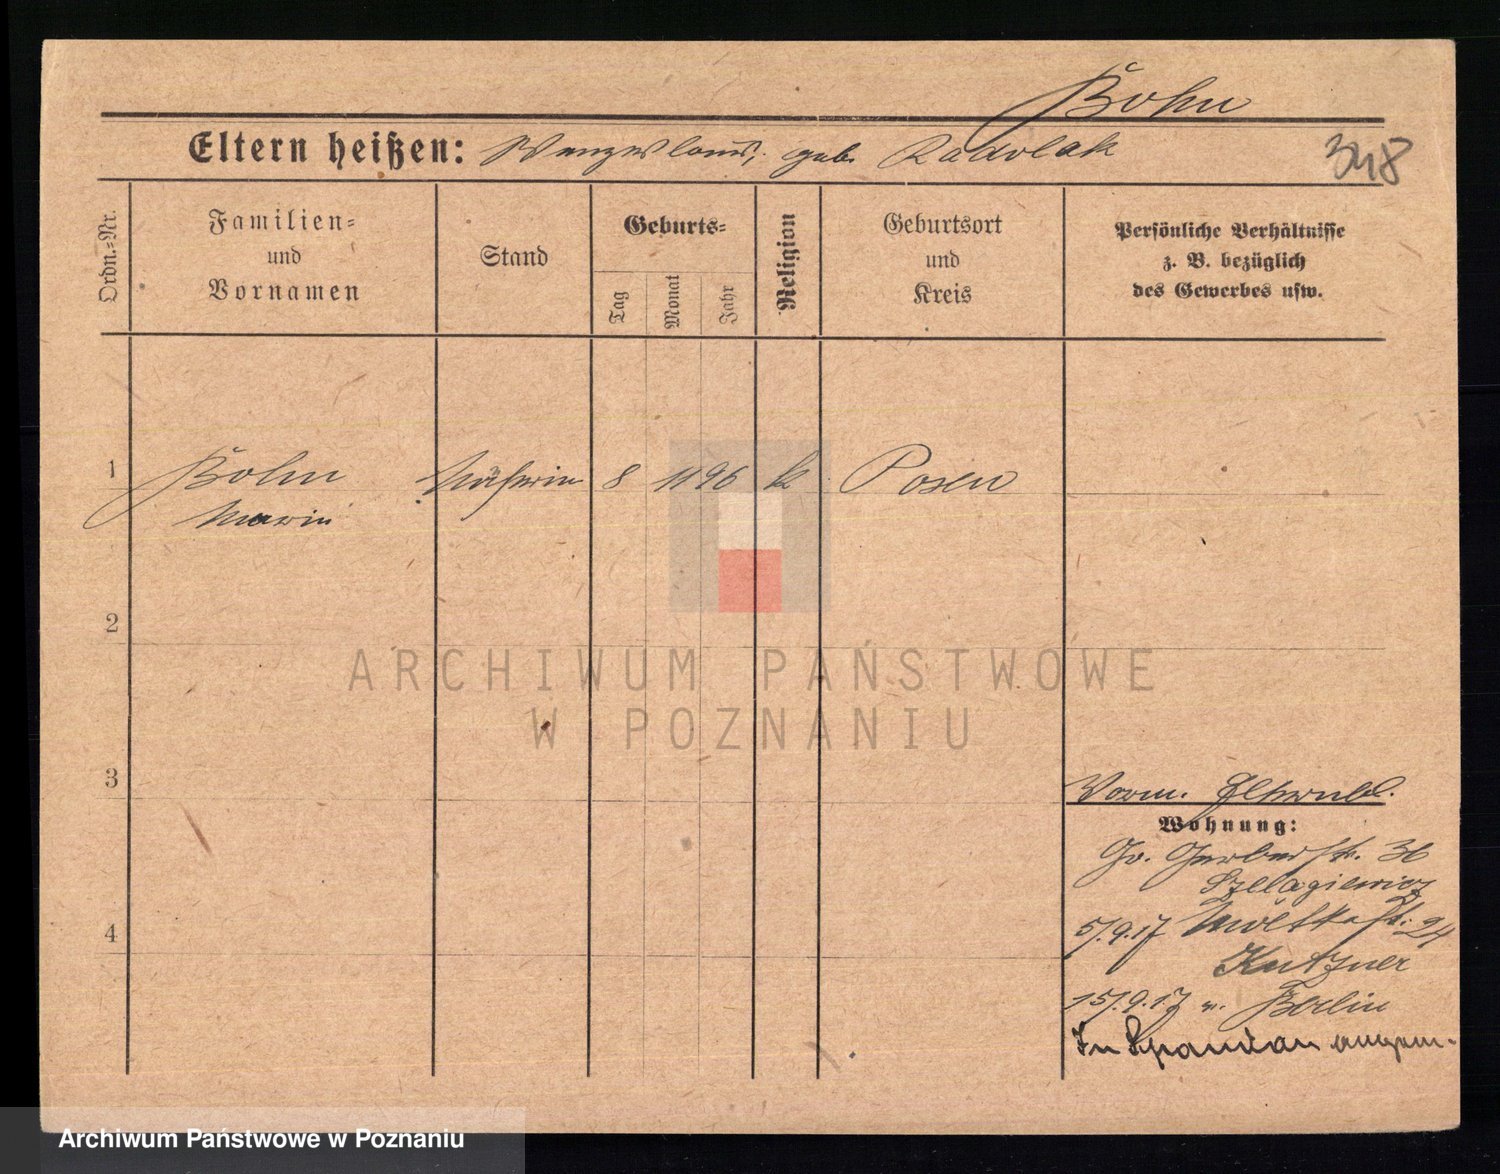 Bohn
Eltern heißen: Wenzeslaus, geb. Radolak
348
Ordn.=Nr.
Familien=
und
Vornamen
Stand
Geburts=
Tag
Monat
Jahr
Religion
Geburtsort
und
Kreis
Persönliche Verhältnisse
z. B. bezüglich
des Gewerbes usw.
1 Bohn Näherin 8 11 96 k Posen
Marie
2
ARCHIWUM PAŃSTWOWE
W POZNANIU
3
Vorm.
Wohnung:
Gr. Gerberstr. 36
Szelagiewicz
4
5/9.17 Moltkestr. 24
Kutzner
15/9.17 n. Berlin
In Spandau angem.
Archiwum Państwowe w Poznaniu